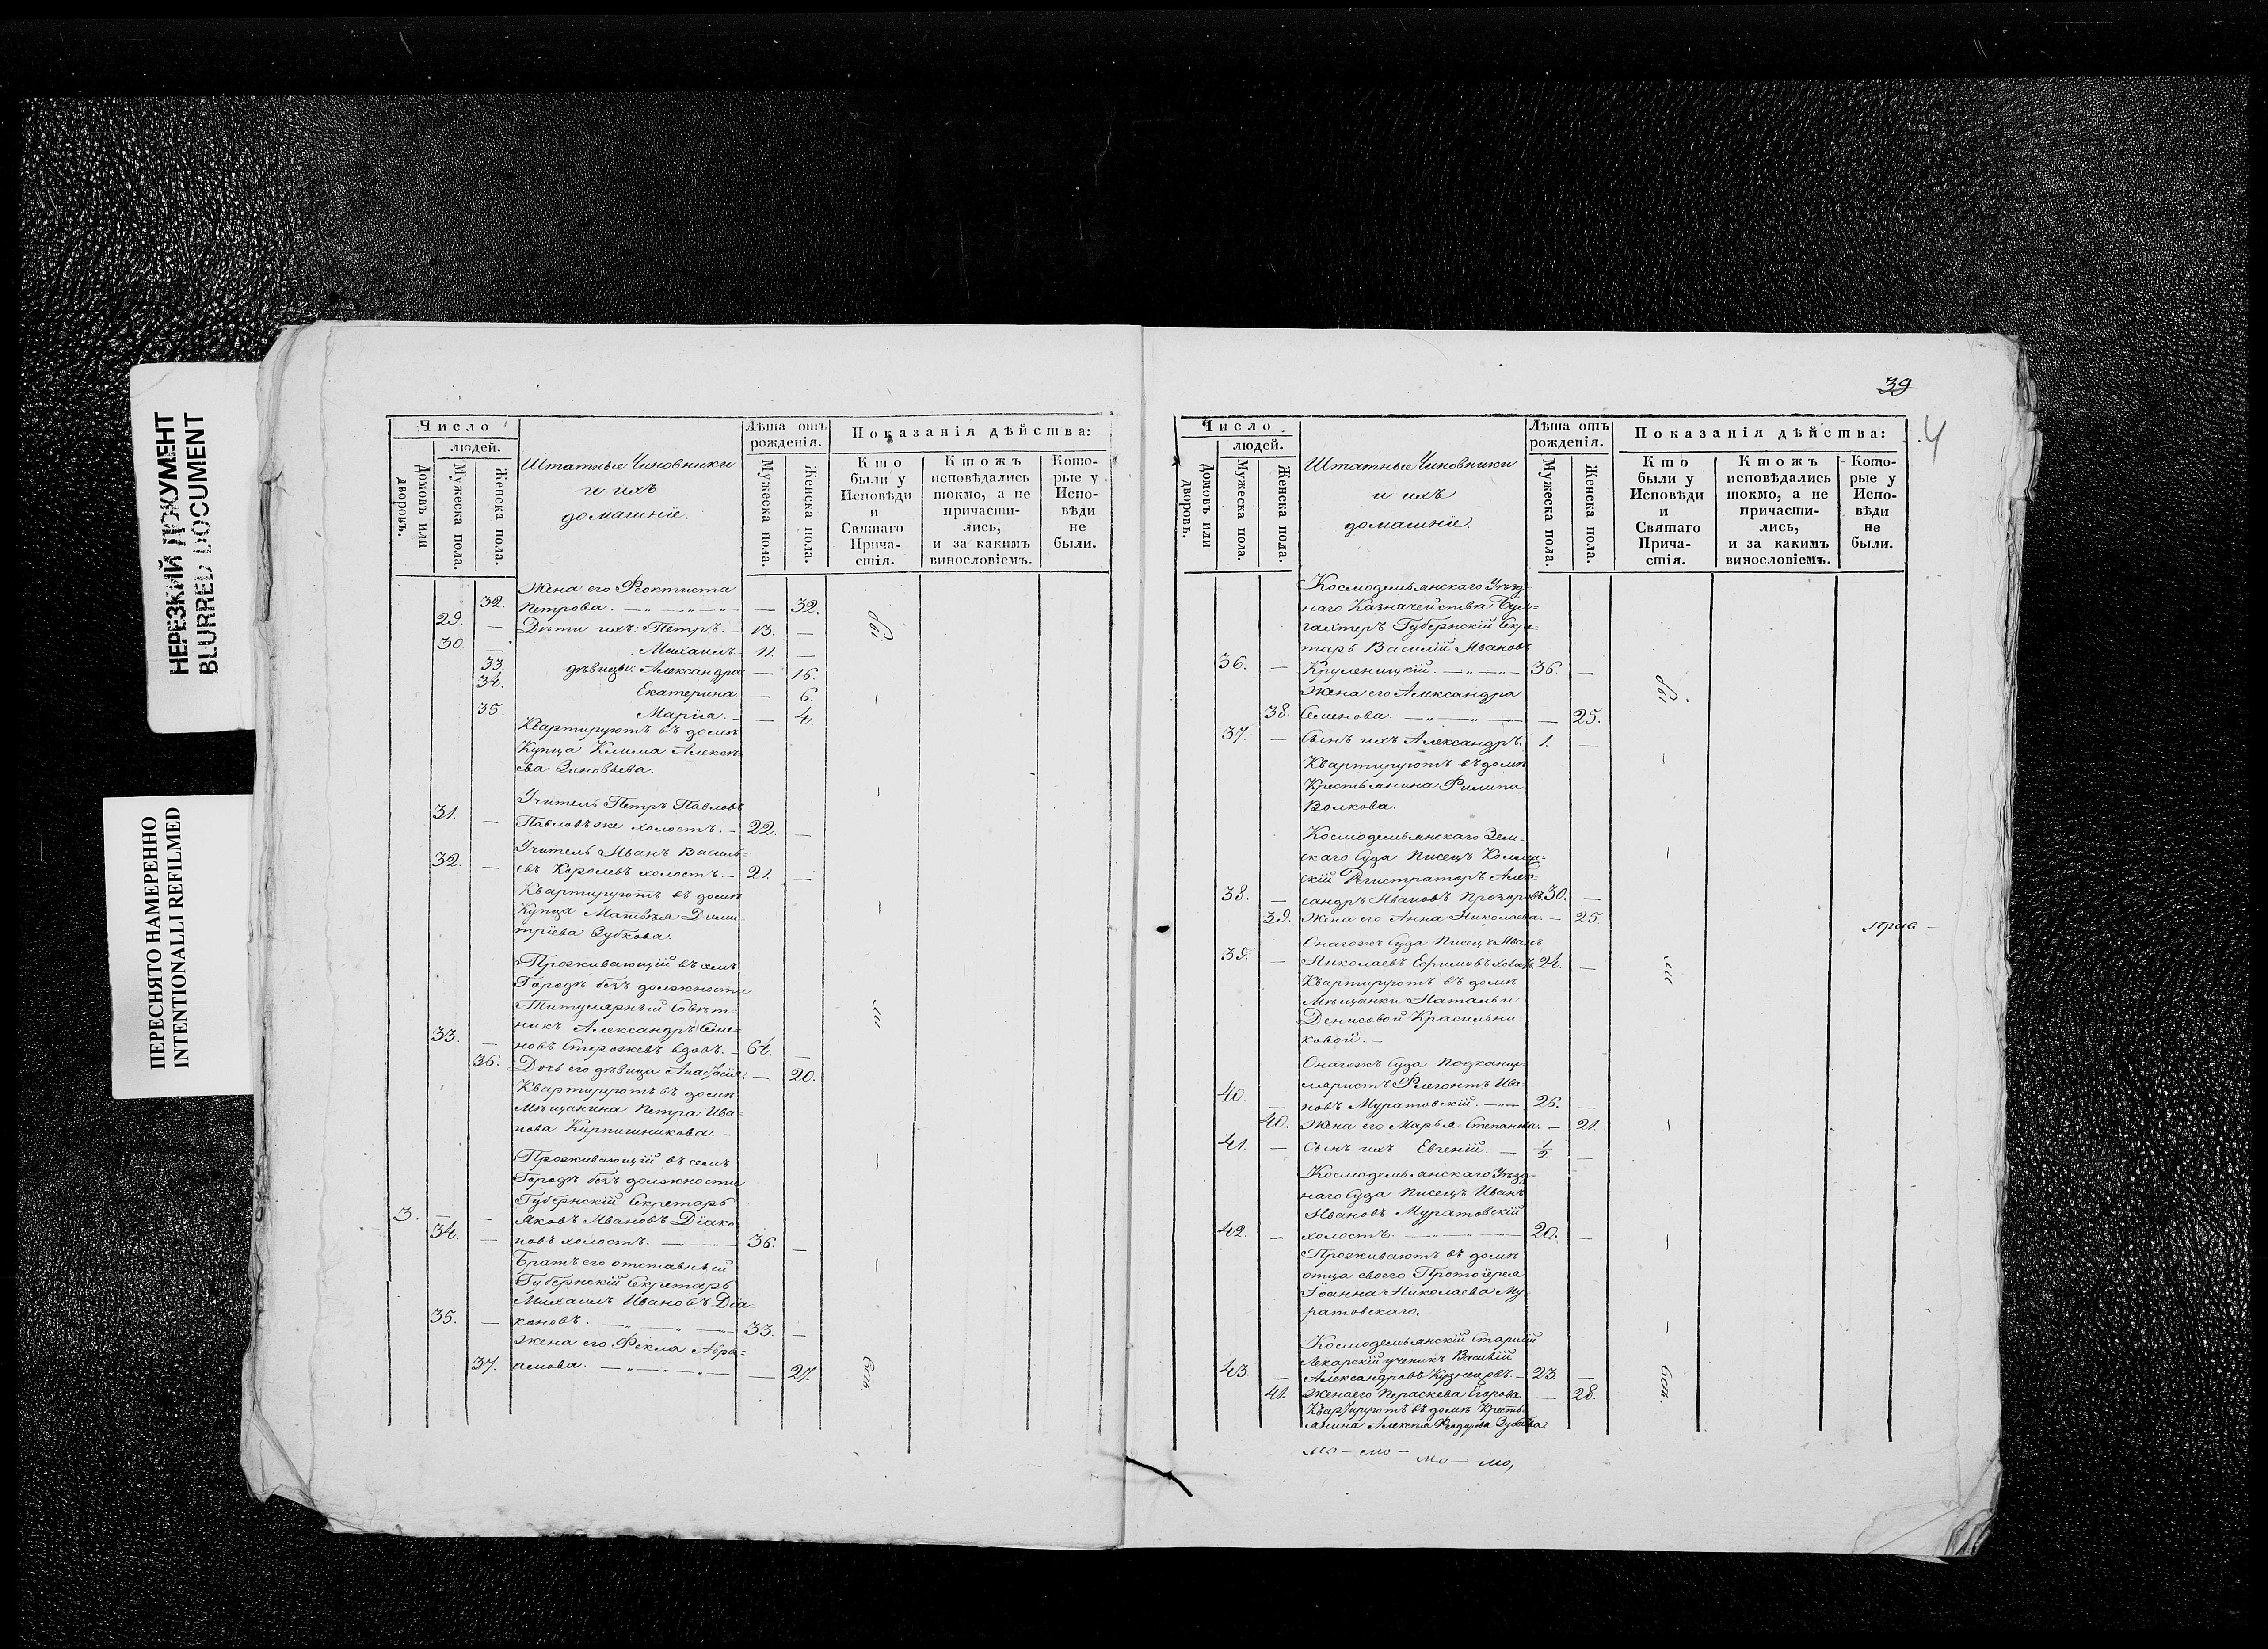 НЕРЕЗКИЙ ДОКУМЕНТ
BLURRED DOCUMENT
ПЕРЕСНЯТО НАМЕРЕННО
INTENTIONALLI REFILMED
Число
людей.
Домовъ или дворовъ.
Мужеска пола.
Женска пола.
Штатные Чиновники
и ихъ
домашніе.
Лѣта отъ
рожденія.
Мужеска пола.
Женска пола.
Показанія дѣйства:
Кто
были у
Исповѣди
и
Святаго
Прича-
стія.
Ктожъ
исповѣдались
токмо, а не
причасти-
лись,
и за какимъ
винословіемъ.
Кото-
рые у
Испо-
вѣди
не
были.
Жена его Фѳоктиста
32. Петрова. — 32.
29. — Дѣти ихъ: Петръ. — 13. —
30. — Михаилъ — 11. —
33. дѣвицы: Александра — 16.
34. Екатерина — 6.
35. Марія. — 4.
Квартируютъ въ домѣ
Купца Клима Алексѣ
ева Зиновьева.
Учитель Петръ Павловъ
31. — Павловъ же холостъ. — 22. —
Учитель Иванъ Василь-
32. — евъ Королевъ холостъ. — 21. —
Квартируютъ въ домѣ
Купца Матвѣя Дими
тріева Зубкова.
Проживающій въ семъ
Городѣ безъ должности
Титулярный Совѣт-
никъ Александръ Семе
33. — новъ Сторожевъ вдовъ. — 64. —
36. Дочь его дѣвица Анастасія — 20.
Квартируютъ въ домѣ
Мѣщанина Петра Ива-
нова Кирпишникова. —
Проживающій въ семъ
Городѣ безъ должности
Губернскій Секретарь
3. — — Яковъ Ивановъ Діако
34. — новъ холостъ. — 36. —
Братъ его отставный
Губернскій Секретарь
Михаилъ Ивановъ Діа
35. — коновъ. — 33. —
Жена его Фекла Абра-
37. амова. — 27.
39
4
Число
людей.
Домовъ или дворовъ.
Мужеска пола.
Женска пола.
Штатные Чиновники
и ихъ
домашніе.
Лѣта отъ
рожденія.
Мужеска пола.
Женска пола.
Показанія дѣйства:
Кто
были у
Исповѣди
и
Святаго
Прича-
стія.
Ктожъ
исповѣдались
токмо, а не
причасти-
лись,
и за какимъ
винословіемъ.
Кото-
рые у
Испо-
вѣди
не
были.
Космодемьянскаго Уѣзд-
наго Казначейства Бух-
галтеръ Губернскій Секре-
тарь Василій Ивановъ
36. — Круленицкій. — 36. —
Жена его Александра
38. Семенова. — 25.
37. — Сынъ ихъ Александръ. 1. —
Квартируютъ въ домѣ
Крестьянина Филипа
Волкова.
Космодемьянскаго Зем-
скаго Суда Писецъ Коллеж-
скій Регистраторъ Алек-
38. — сандръ Ивановъ Прозоровъ 30. —
39. Жена его Анна Николаева. — 25.
Онагожъ Суда Писецъ Иванъ
39. — Николаевъ Ефимовъ холостъ 24. —
Квартируютъ въ домѣ
Мѣщанки Натальи
Денисовой Красильни
ковой. —
Онагожъ Суда Подканце-
ляристъ Флегонтъ Ива-
40. — новъ Муратовскій. — 26. —
40. Жена его Марья Степанова. — 21.
41. — Сынъ ихъ Евгеній. — 1/2 —
Космодемьянскаго Уѣзд
наго Суда Писецъ Иванъ
Ивановъ Муратовскій
42. — холостъ. — 20. —
Проживаютъ въ домѣ
отца своего Протоіерея
Іоанна Николаева Му
ратовскаго.
Космодемьянскій Старшій
Лекарскій ученикъ Василій
43. — Александровъ Кузнецовъ. — 23 —
41. Жена его Параскева Егорова — 28.
Квартируютъ въ домѣ Кресть-
янина Алексѣя Федорова Зубкова.